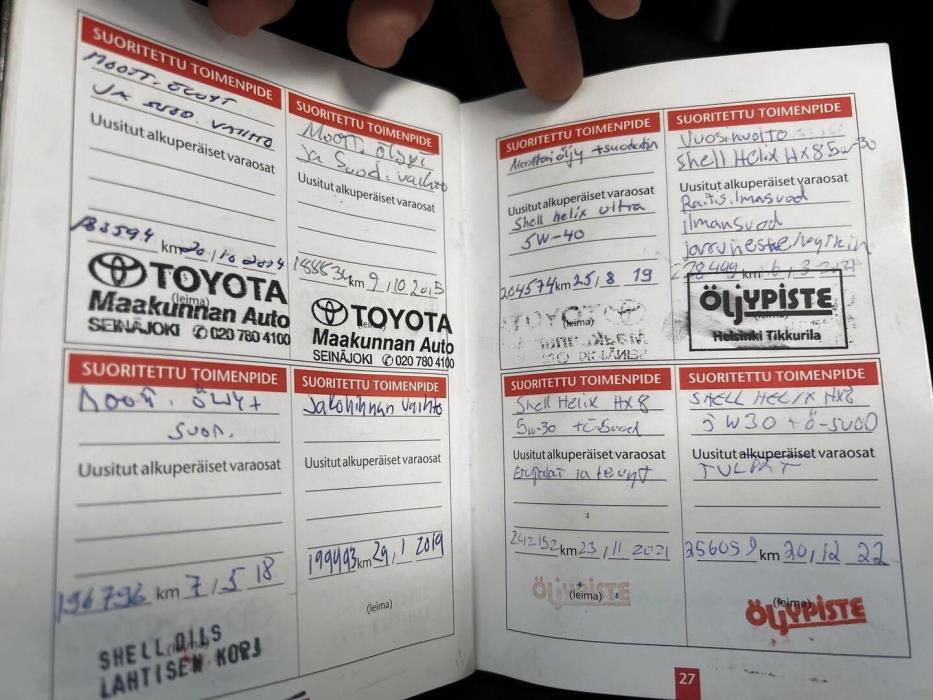 SUORITETTU TOIMENPIDE
MOOTT. ÖLJYT
JA SUOD. VAIHTO
Uusitut alkuperäiset varaosat
183594 km 20/10 2014
(leima)
TOYOTA
Maakunnan Auto
SEINÄJOKI ✆ 020 780 4100
SUORITETTU TOIMENPIDE
Moott. öljyt
ja Suod. vaihto
Uusitut alkuperäiset varaosat
188834 km 9/10 2015
(leima)
TOYOTA
Maakunnan Auto
SEINÄJOKI ✆ 020 780 4100
SUORITETTU TOIMENPIDE
Moott. öljyt
suod.
Uusitut alkuperäiset varaosat
196796 km 7/5 18
(leima)
SHELL OILS
LAHTISEN KORJ
SUORITETTU TOIMENPIDE
Jakohihnan vaihto
Uusitut alkuperäiset varaosat
199493 km 29/1 2019
(leima)
SUORITETTU TOIMENPIDE
Moottoriöljy + suodatin
Uusitut alkuperäiset varaosat
Shell helix ultra
5W-40
204574 km 25/8 19
(leima)
TOYOTA
SUORITETTU TOIMENPIDE
Vuosihuolto
Shell HELIX HX8 5w-30
Uusitut alkuperäiset varaosat
Raitis.Ilmasuod
ilmansuod
jarruneste
km 6/3 2021
ÖLJYPISTE
(leima)
Helsinki Tikkurila
SUORITETTU TOIMENPIDE
Shell Helix HX8
5w-30 + ö-suod
Uusitut alkuperäiset varaosat
Etupalat ja levyt
242152 km 23/11 2021
(leima)
ÖLJYPISTE
SUORITETTU TOIMENPIDE
SHELL HELIX HX8
5W30 + Ö-SUOD
Uusitut alkuperäiset varaosat
TULPAT
256059 km 20/12 22
(leima)
ÖLJYPISTE
27